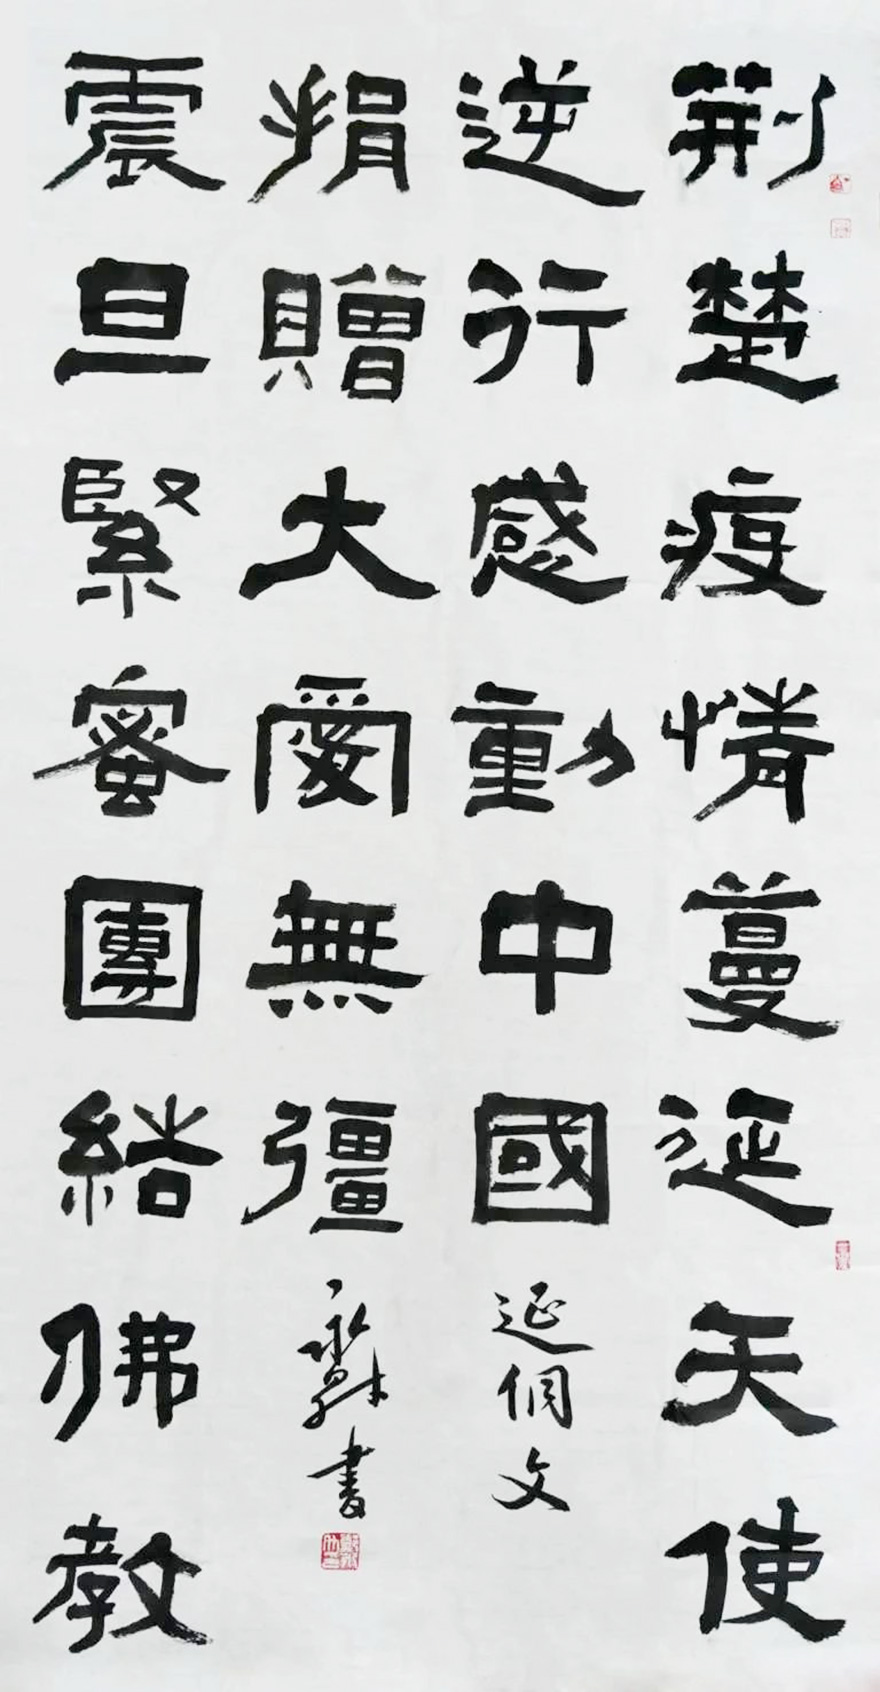 荆楚疫情蔓延天使
逆行感動中國
延 文
震旦緊蜜團結佛教
捐贈大愛無彊
書